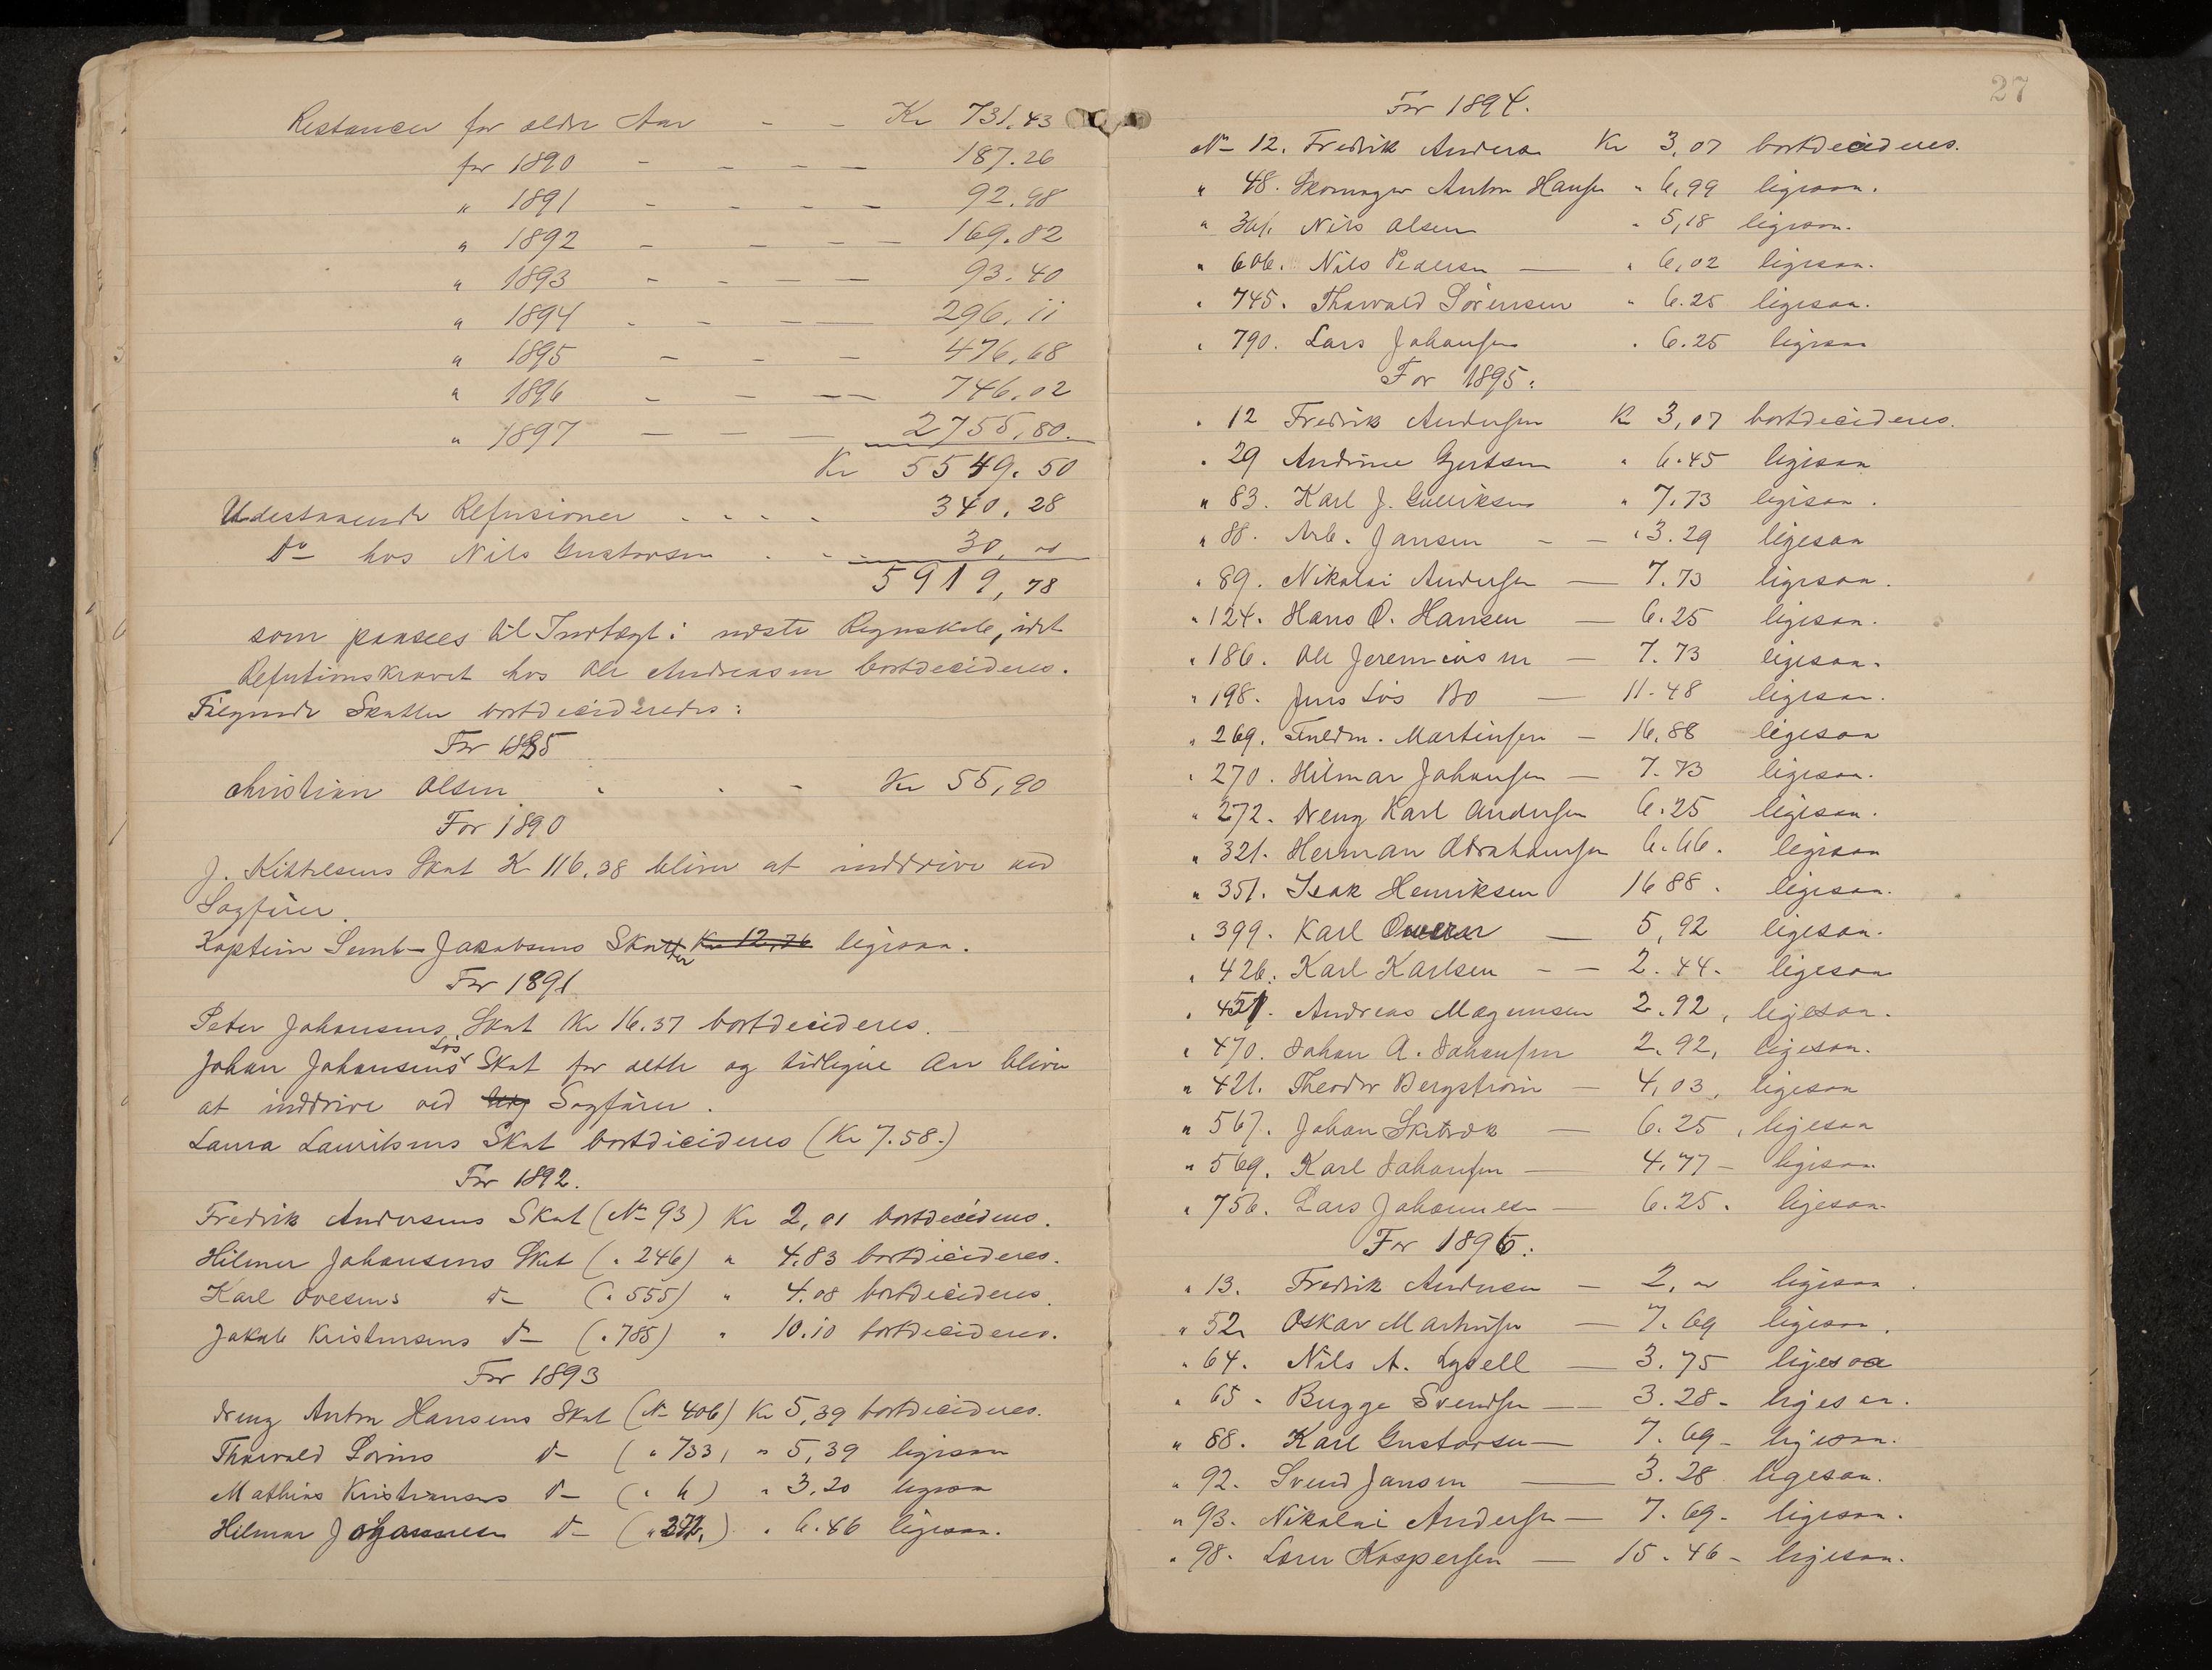 Restancer for ældre Aar - - Kr 731,43
for 1890 - - - — 187.26
" 1891 - - - - 92.98
" 1892 - - - - 169.82
" 1893 - - - - 93.40
" 1894 - - - - 296.11
" 1895 - - - 476,68
" 1896 - - - 746,02
" 1897 - - - 2755,80.
Kr 5549.50
Udestaaende Refusioner - - - - 340,28
Do hos Nils Gustavsen - - - 30,00
5919,78
som passees til Indtægt i næste Regnskab, idet
Refutionskravet hos Ole Andreasen bortdecideres.
Følgende Skatter bortdecideredes:
For 1885
Christian Olsen - - - Kr 55,90
For 1890
J. Kittelsens Skat Kr 116,38 bliver at inddrive ved
Sagfører.
Kaptein Semb-Jakobsens Skatter Kr 12,76 ligesaa.
For 1891
Peter Johansens Skat Kr 16.37 bortdecideres.
Johan Johansens Løs Skat for dette og tidligere Aar bliver
at inddrive ved Sagfører.
Laura Lauritsens Skat bortdicideres (Kr 7.58.)
For 1892.
Fredrik Andersens Skat (No 93) Kr 2,01 bortdecideres.
Hilmer Johansens Skat (" 246) " 4.83 bortdicideres.
Karl Ovesens do (" 555) " 4.08 bortdecideres.
Jakob Kristensens do (" 785) " 10.10 bortdecideres.
For 1893
Dreng Anton Hansens Skat (No 406) Kr 5,39 bortdicideres.
Thorvald Sørens do (" 733) " 5,39 ligesaa
Mathias Kristiansens do (" 6) " 3.20 ligesaa
Hilmar Johannesen do (" 272.) " 6.46 ligesaa.
27
For 1894.
No 12. Fredrik Anderson Kr 3,07 bortdecideres.
" 48. Skomager Anton Hansen " 6,99 ligesaa.
" 361. Nils Olsen " 5,18 ligesaa.
" 606. Nils Pedersen — " 6,02 ligesaa.
" 745. Thorvald Sørensen " 6.25 ligesaa.
" 790. Lars Johansen " 6.25 ligesaa
For 1895.
" 12 Fredrik Andersen Kr 3,07 bortdecideres.
" 29 Andrine Gjertsen " 6.45 ligesaa
" 83. Karl J. Gulliksen " 7.73 ligesaa.
" 88. Arb. Jansen - - " 3.29 ligesaa
" 89. Nikolai Andersen — 7.73 ligesaa.
" 124. Hans O. Hansen — 6.25 ligesaa.
" 186. Ole Jeremiasen — 7.73 ligesaa.
" 198. Jens Løs Bo — 11.48 ligesaa.
" 269. Martinsen — 16,88 ligesaa
" 270. Hilmar Johansen — 7.73 ligesaa.
" 272. Dreng Karl Andersen 6.25 ligesaa.
" 321. Herman Abrahamsen 6.66. ligesaa
" 351. Isak Henriksen 16 88. ligesaa.
" 399. Karl — 5,92 ligesaa.
" 426. Karl Karlsen - - 2.44. ligesaa
" 451. Andreas Magnusen 2.92, ligesaa.
" 470. Johan A. Johansen 2.92, ligesaa.
" 421. Theodor Bergstrøm — 4,03, ligesaa
" 567. Johan — 6.25, ligesaa
" 569. Karl Johansen — 4.77 — ligesaa.
" 756. Lars Johannesen — 6.25. ligesaa.
For 1896.
" 13. Fredrik Andersen — 2,00 ligesaa.
" 52. Oskar Martinsen — 7.69 ligesaa.
" 64. Nils A. Lydell — 3.75 ligesaa
" 65. Bugge Svendsen — 3.28 - ligesaa.
" 88. Karl Gustavsen — 7.69 - ligesaa.
" 92. Svend Jansen — 3.28 ligesaa.
" 93. Nikolai Andersen — 7.69 - ligesaa.
" 98. Kaspersen — 15.46 - ligesaa.